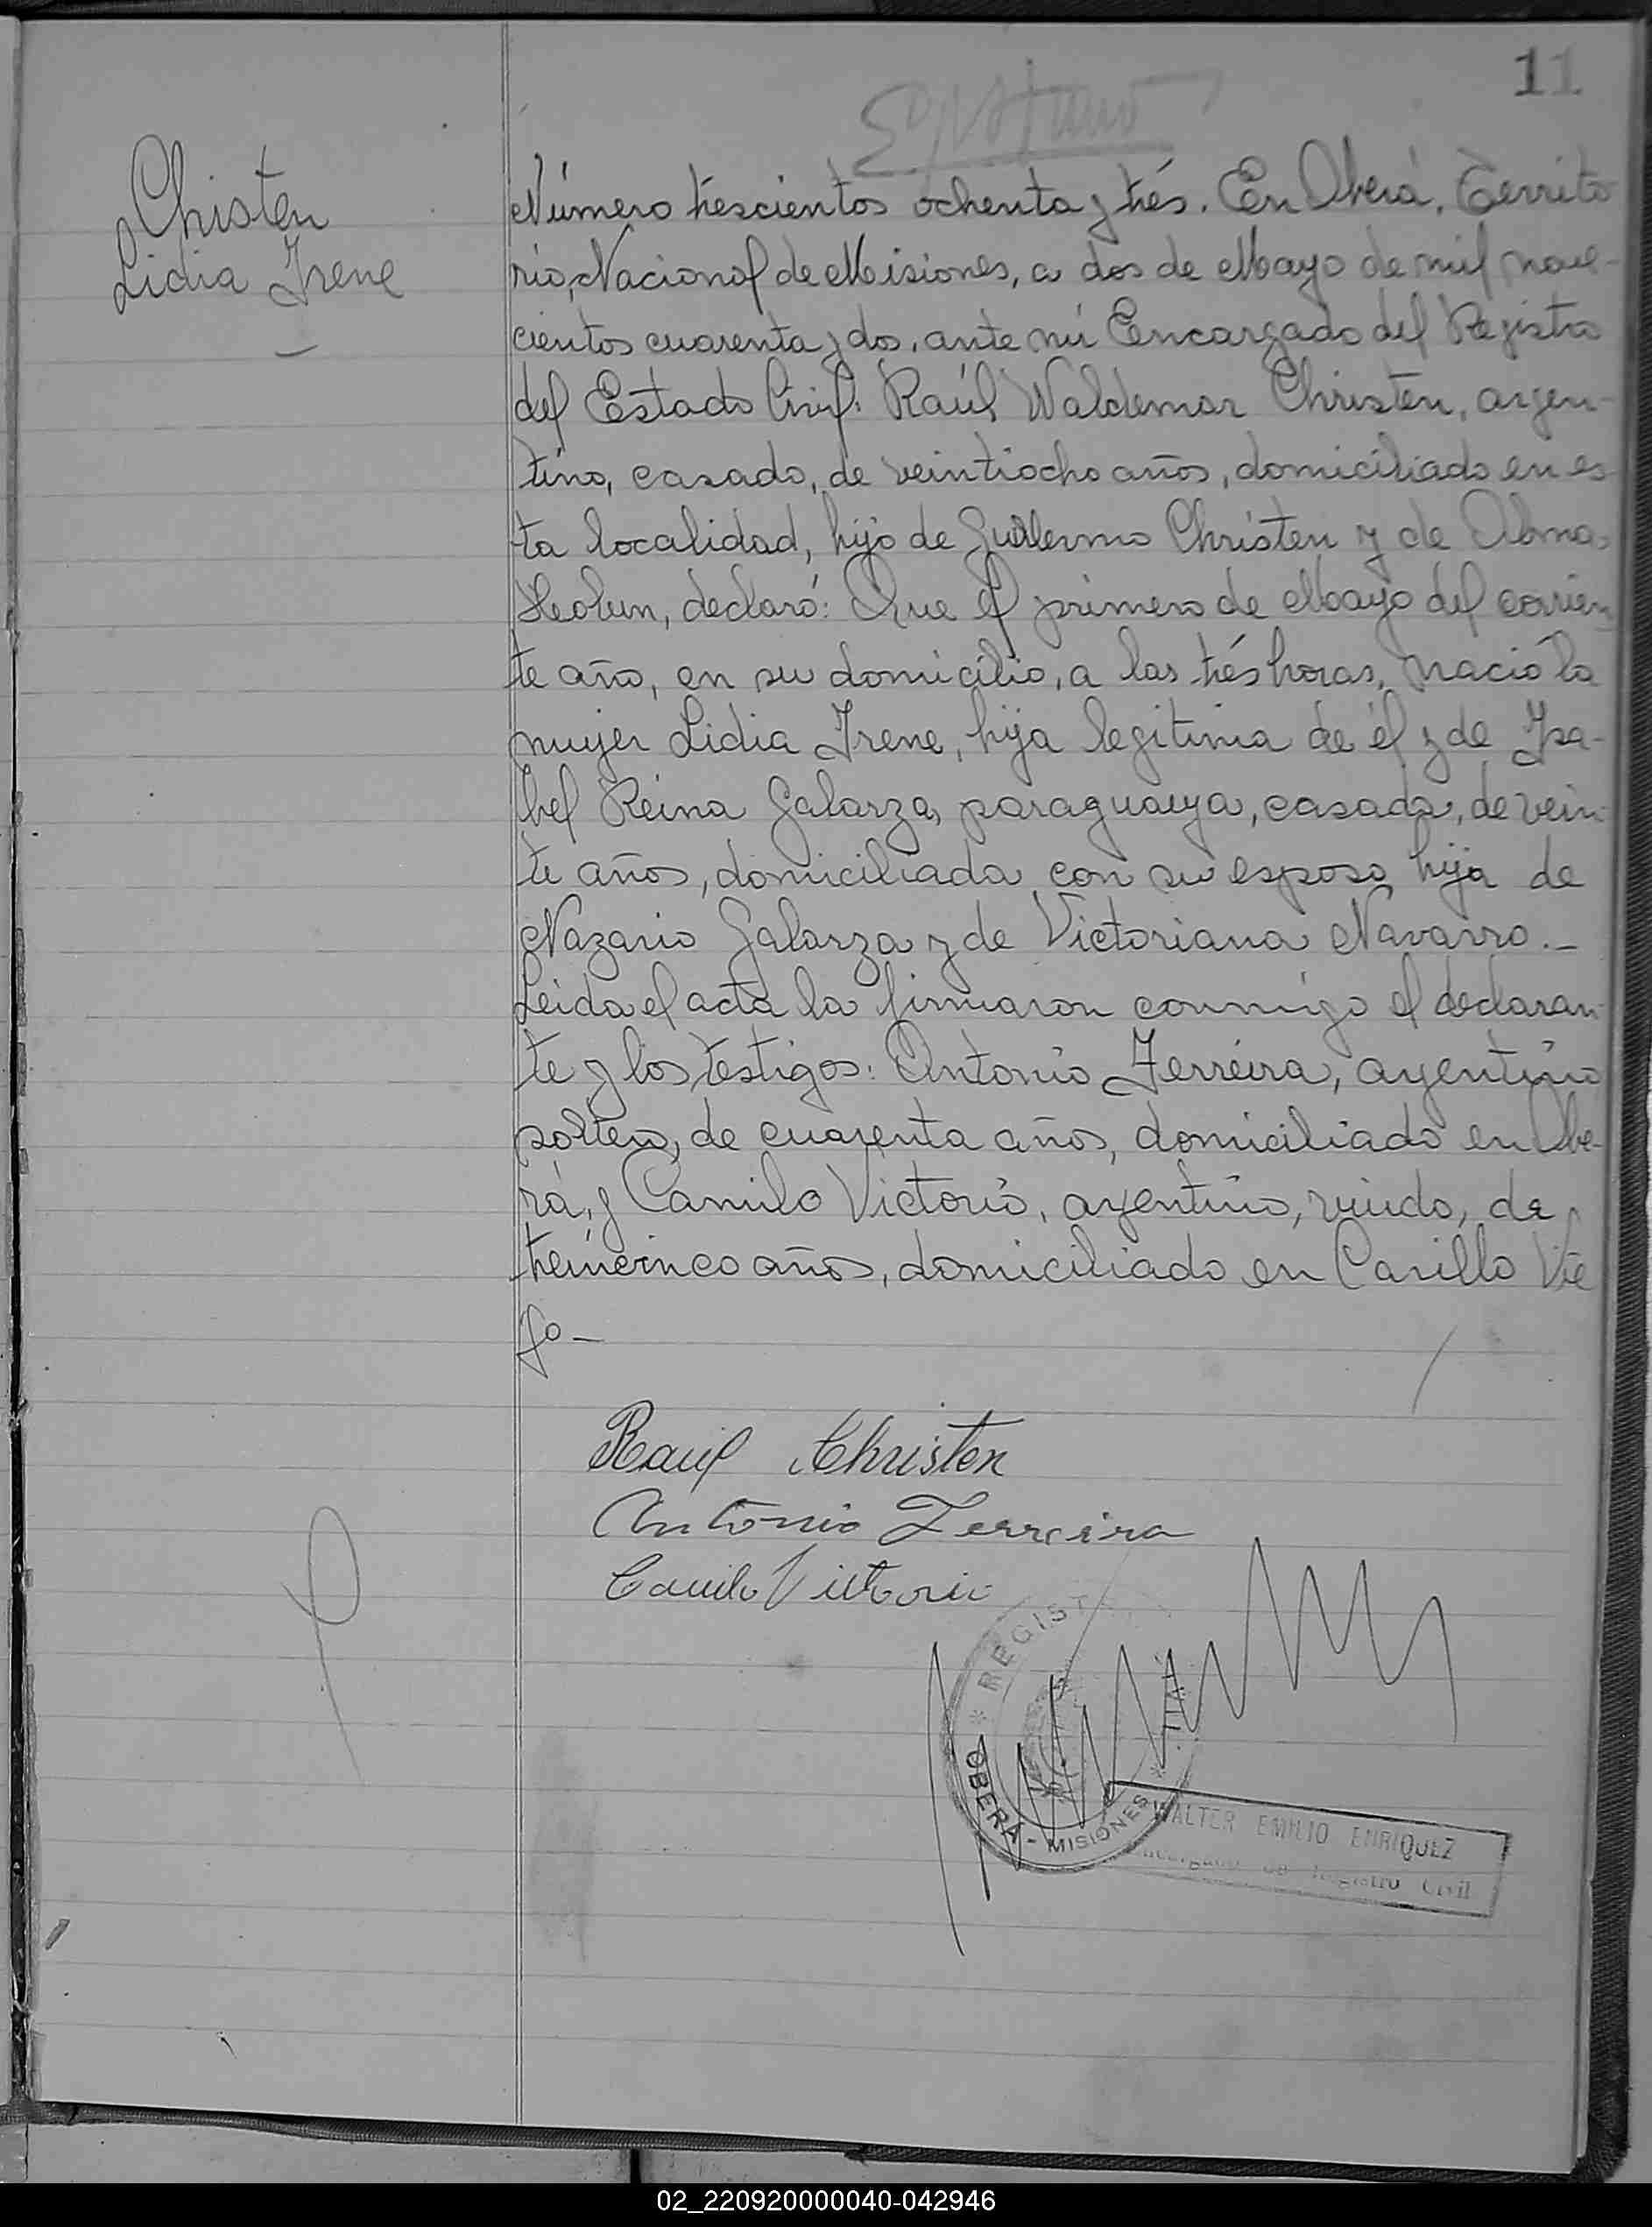 11
Chisten
Lidia Irene
Número trescientos ochenta y trés. En Oberá. Territo
rio Nacional de Misiones, a dos de Mayo de mil nove-
cientos cuarenta y dos, ante mí Encargado del Registro
del Estado Civil: Raúl Waldemar Christen, argen-
tino, casado, de veintiocho años, domiciliado en es
ta localidad, hijo de Guillermo Christen y de
declaró: Que el primero de Mayo del corrien
te año, en su domicilio, a las trés horas, nació la
mujer Lidia Irene, hija legitima de él y de Ysa-
bel Reina Galarza, paraguaya, casada, de vein
te años, domiciliada con su esposo, hija de
Nazario Galarza y de Victoriana Navarro.-
Leida el acta la firmaron conmigo el declaran
te y los testigos: Antonio Ferreira, argentino
soltero, de cuarenta años, domiciliado en Obe-
rá, y Camilo Victorio, argentino, viudo, de
treincinco años, domiciliado en Carillo Vie
jo-
Raul Christen
Antonio Ferreira
Camilo Victorio
REGIST
CIVIL
OBERÁ - MISIONES
WALTER EMILIO ENRIQUEZ
Encargado de Registro Civil
02_220920000040-042946